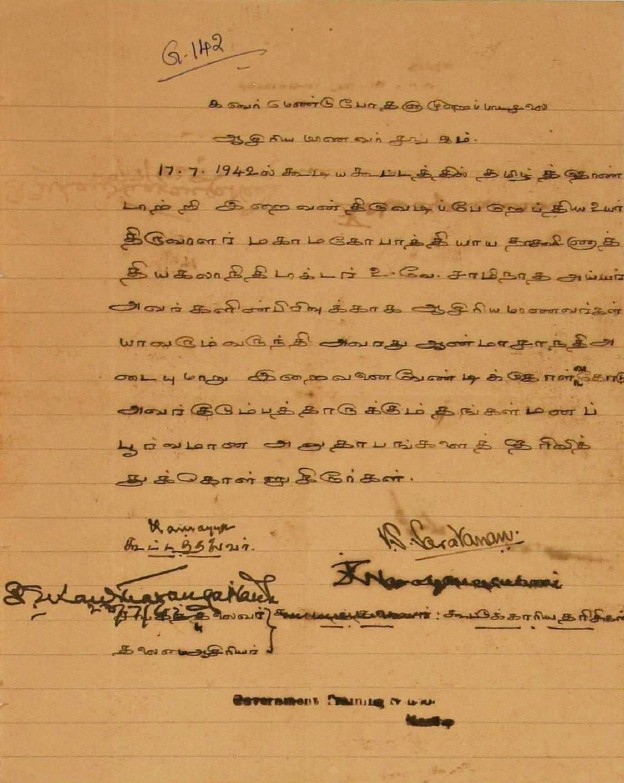 G. 142
கவர்மெண்டு போதனாமுறைப் பாடசாலை
ஆசிரிய மாணவர் சங்கம்.
17.7.1942ல் கூடிய கூட்டத்தில் தமிழ்த்தொண்
டாற்றி இறைவன் திருவடிப்பேறெய்திய உயர்
திருவாளர் மகாமகோபாத்தியாய தாக்ஷிணாத்
தியகலாநிதி டாக்டர் உ.வே. சாமிநாத அய்யர்
அவர்களின் பிரிவுக்காக ஆசிரிய மாணவர்கள்
யாவரும் வருந்தி அவரது ஆன்மா சாந்தி அ
டையுமாறு இறைவனை வேண்டிக்கொள்வதோடு
அவர் குடும்பத்தாருக்கும் தங்கள் மனப்
பூர்வமான அனுதாபங்களைத் தெரிவித்
துக்கொள்ளுகிறார்கள்.
கூட்டத்தலைவர்.
V.S. Saravanan.
சங்கத்தலைவர்
கூட்டுக்காரியதரிசிகள்
தலைமை ஆசிரியர்
Government Training